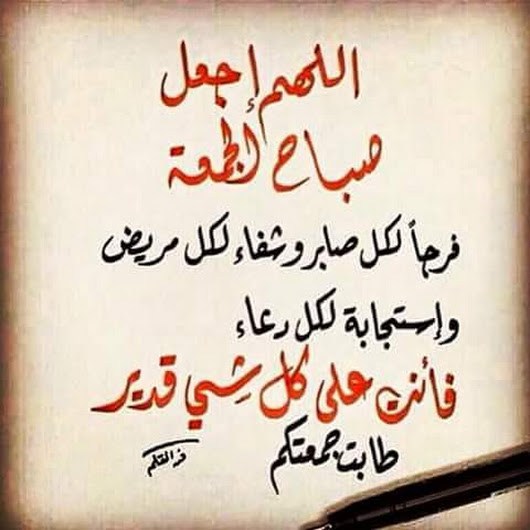 اللهم إجعل
صباح الجمعة
فرجاً لكل صابر وشفاء لكل مريض
وإستجابة لكل دعاء
فأنت على كل شي قدير
طابت جمعتكم